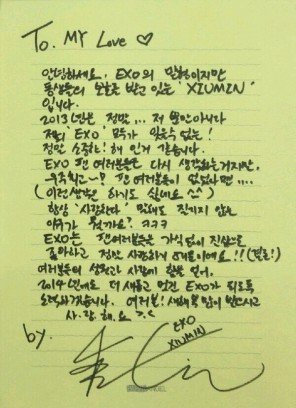 To. MY Love ♡
안녕하세요, EXO의 맏형이지만
동생들의 보호를 받고 있는 'XIUMIN'
입니다.
2013년은 정말.... 저 뿐만 아니라
저희 EXO 모두가 잊을수 없는!
정말 소중한! 해 인거 같습니다.
EXO 팬 여러분들은 다시 생각하는거지만,
팬 여러분들이 없었다면....
(이런생각은 하기도 싫네요 ^^)
항상 '사랑한다' 말해도 질리지 않는
이유가 뭘까요? ㅋㅋㅋ
EXO는 팬여러분들은 가식없이 진심으로
좋아하고 정말 사랑하게 !!
여러분들의 사랑이
2014년에도 더 새롭고 멋진 EXO가 되도록
노력하겠습니다. 여러분! 새해복 많이 받으시고
사.랑.해.요 >.<
by.
EXO
XIUMIN